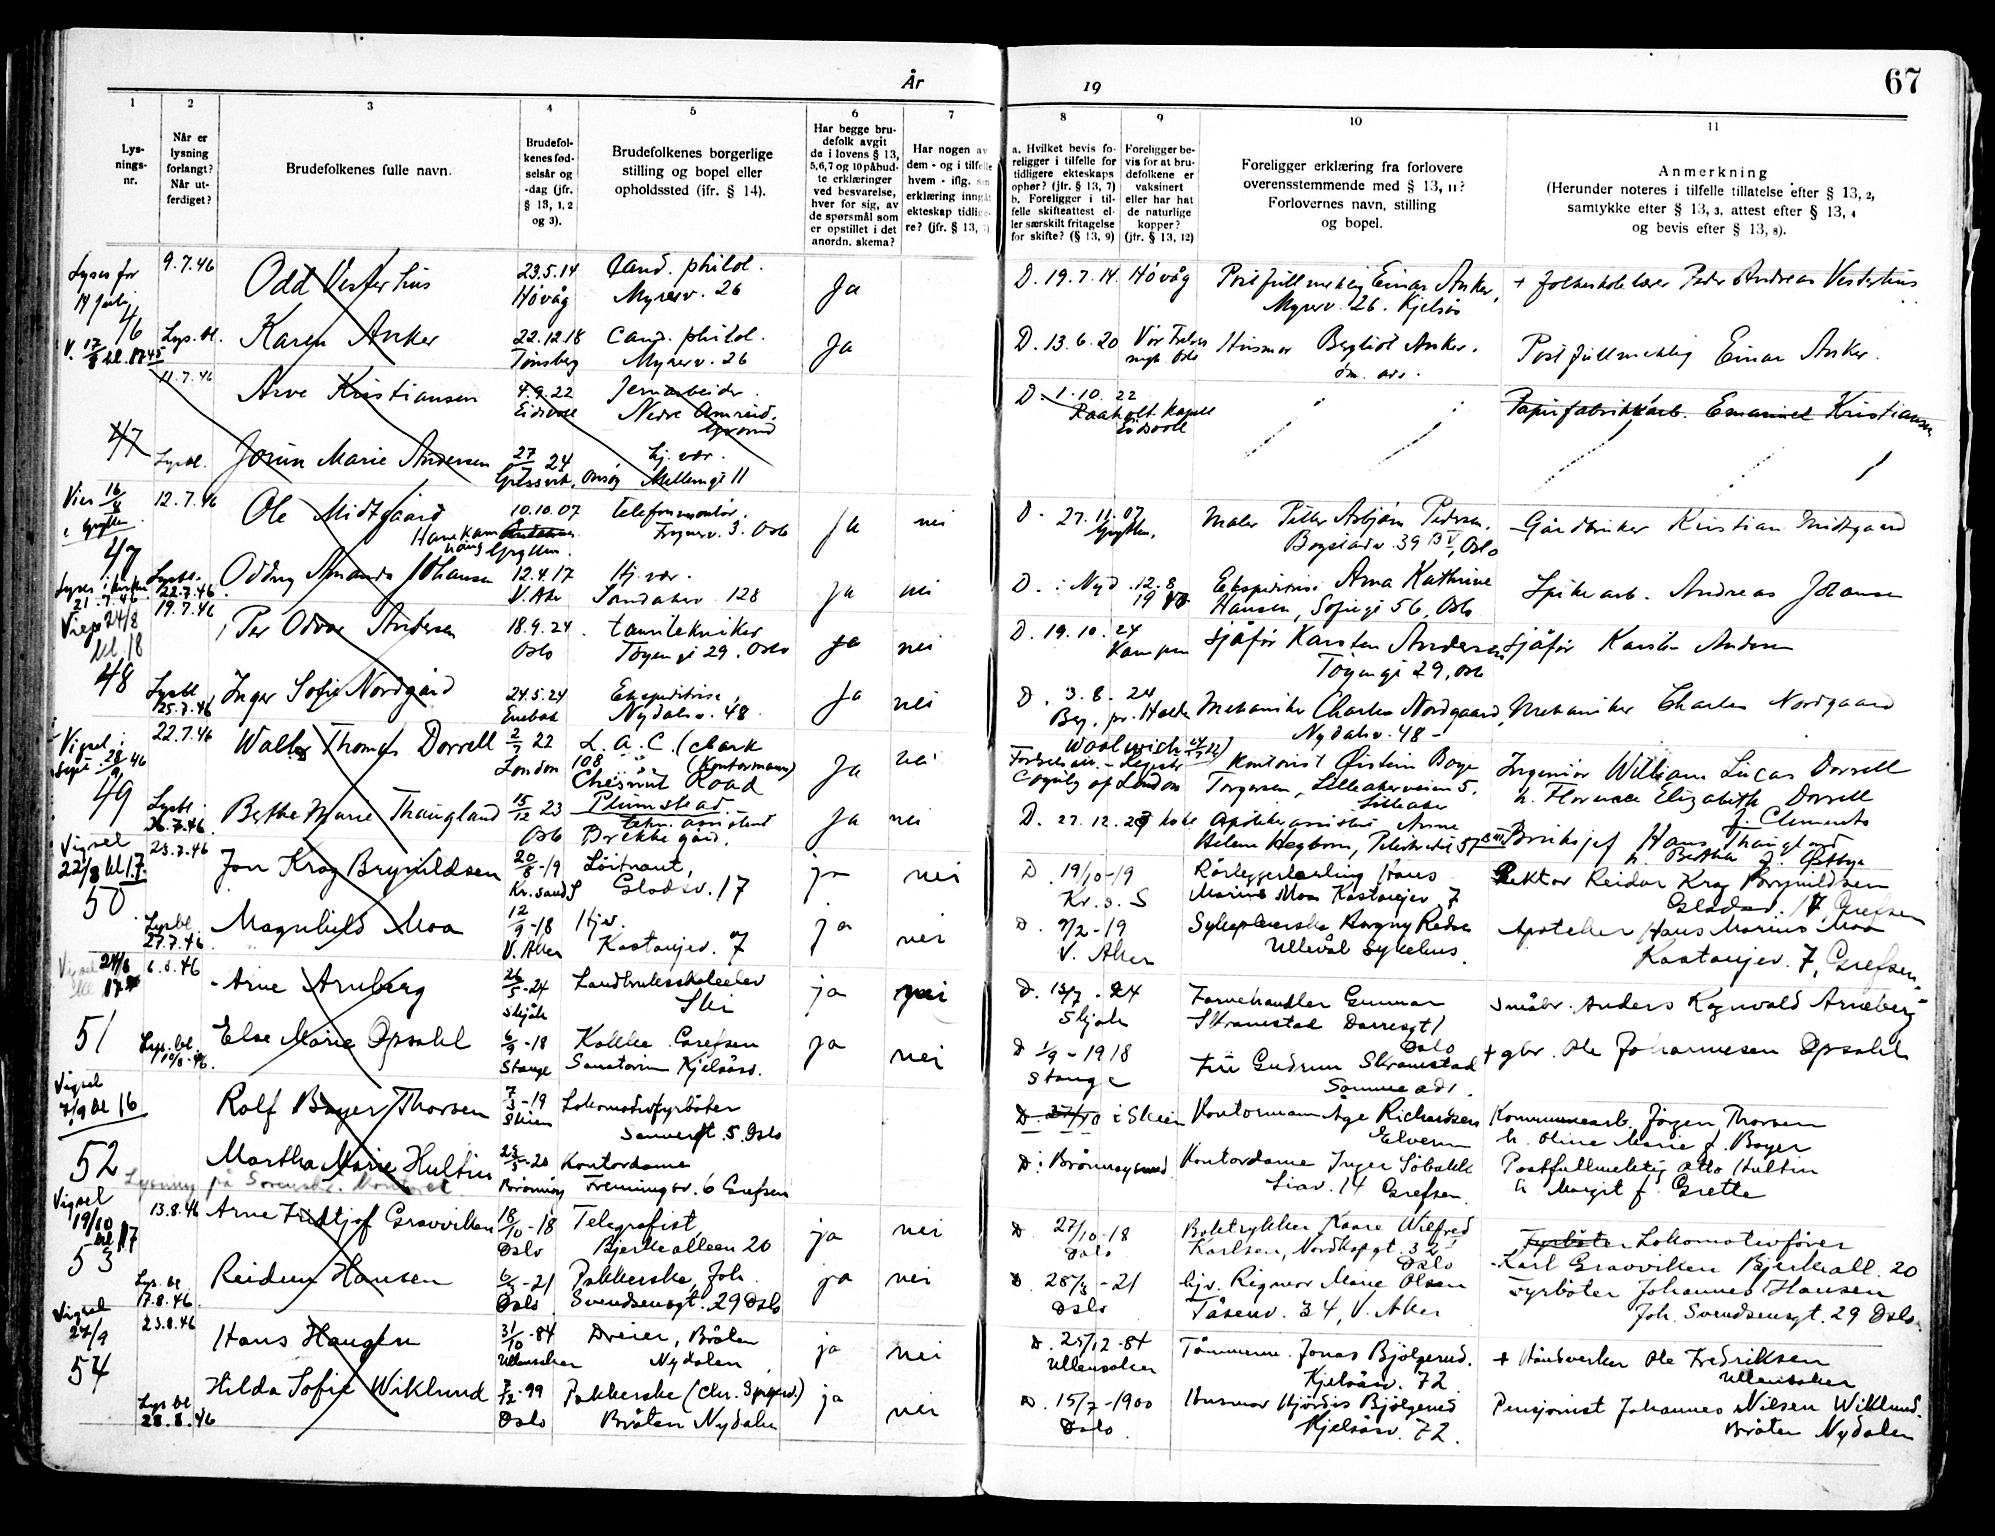 År
19
67
1
2
3
4
5
6
7
8
9
10
11
Lys-
nings-
nr.
Når er
lysning
forlangt?
Når ut-
ferdiget?
Brudefolkenes fulle navn.
Brudefol-
kenes fød-
selsår og
-dag (jfr.
§ 13, 1, 2
og 3).
Brudefolkenes borgerlige
stilling og bopel eller
opholdssted (jfr. § 14).
Har begge bru-
defolk avgit
de i lovens § 13,
5,6,7 og 10 påbud-
te erklæringer
ved besvarelse,
hver for sig, av
de spørsmål som
er opstillet i det
anordn. skema?
Har nogen av
dem - og i tilfelle
hvem - iflg. sin
erklæring inngåt
ekteskap tidlige-
re? (jfr. § 13, 7).
a. Hvilket bevis fo-
religger i tilfelle for
tidligere ekteskaps
ophør? (jfr. § 13, 7)
b. Foreligger i til-
felle skifteattest el-
ler særskilt fritagelse
for skifte? (§ 13, 9)
Foreligger be-
vis for at bru-
defolkene er
vaksinert
eller har hat
de naturlige
kopper?
(jfr. § 13, 12)
Foreligger erklæring fra forlovere
overensstemmende med § 13, 11?
Forlovernes navn, stilling
og bopel.
Anmerkning
(Herunder noteres i tilfelle tillatelse efter § 13, 2,
samtykke efter § 13, 3, attest efter § 13, 4
og bevis efter § 13, 8).
Lyses for
46
9.7.46
Odd Vesterhus
23.5.14
Høvåg
Cand. philol.
Myrerv. 26
Ja
D. 19.7.14. Høvåg
Postfullmektig Einar Anker,
Myrerv. 26. Kjelsås
+ folkeskolelærer Peder Andreas Vesterhus
V. 17/8 kl. 17 45
Lys.bl.
Karen Anker
22.12.18
Tønsberg
Cand. philol.
Myrerv. 26
Ja
D. 13.6.20
Husmor Bergliot Anker.
Postfullmektig Einar Anker.
47
11.7.46
Arve Kristiansen
4.9.22
Eidsvoll
Jernarbeider
Nedre
D. 1.10.22
Raaholt Kapell
Eidsvoll
Papirfabrikkarb. Emanuel Kristiansen
Lysbl.
Jorun Marie Andersen
27/7 24
Hj. vær.
11
Vies 16/8
47
12.7.46
Ole Midtgaard
10.10.07
Telefonmontør.
3. Oslo
Ja
nei
D. 27.11.07
Maler Petter Asbjørn Pedersen,
Bogstadv. 39 B V, Oslo
Gårdbruker Kristian Midtgaard
Lysbl.
22.7.46
Oddny Amanda Johansen
12.4.17
V. Aker
Hj. vær.
Sandakerv. 128
Ja
nei
D. i Nyd. 12.8
Ekspeditrise Arna Kathrine
Hansen, Sofiegt 56, Oslo
Spikerarb. Andreas Johansen
21.7.46
Vies 24/8
kl. 18
48
19.7.46
Per Oddvar Andersen
18.9.24
Oslo
Tanntekniker
Tøyengt 29, Oslo
Ja
nei
D. 19.10.24
Kampen
Sjåfør Karsten Andersen
Tøyengt 29, Oslo
Sjåfør Karsten Andersen
Lysbl
25.7.46
Inger Sofie Nordgård
24.5.24
Enebak
Ekspeditrise,
Nydalsv. 48
Ja
nei
D. 3.8.24
Mekaniker Charles Nordgaard,
Nydalsv. 48
Mekaniker Charles Nordgaard
Vigsel
49
22.7.46
Walter Thomas Dorrell
2/7 22
London
L. A. C. (clark
108 (Kontormann)
Chesnut Road
Plumstead
Ja
nei
Woolwich
County of London
Kontorist Øistein Boye
Torgersen, Lilleakerveien 5.
Lilleaker
Ingeniør William Lucas Dorrell
h. Florence Elizabeth Dorrell
f. Clements
Lysbl.
26.7.46
Berthe Marie Thaugland
15/12 23
Oslo
tekn. assistent
Brekke gård.
Ja
nei
D. 27.12.23
Apotekerassistent Anne
Helene Hegbom,
Bruksjef Hans Thaugland
h. Bertha f. Østbye
Vigsel
22/8 kl 17.
50
23.7.46
Jon Krag Brynildsen
20/8-19
Kr.sand S
Løitnant,
Gladsv. 17
ja
nei
D 19/10-19
Kr. s. S
Rørleggerlærling Hans
Marius Moa Kastanjev. 7
Rektor Reidar Krag Brynildsen
Gladsv. 17, Grefsen
Lysbl.
27.7.46
Magnhild Moa
12/9-18
V. Aker
Hjv.
Kastanjev. 7
ja
nei
D. 9/2-19
V. Aker
Sykepleierske
Ullevål Sykehus.
Apoteker Hans Marius Moa
Kastanjev. 7, Grefsen
Vigsel 24/8
51
6.8.46
Arne Arneberg
26/5-24
Skjåk
Landbruksskoleelev
Ski
ja
nei
D. 13/7-24
Skjåk
Farvehandler Gunnar
Skramstad Darresgt 1
Oslo
småbr. Anders Ragnvald Arneberg
Lys.bl.
10/8-46.
Else Marie Opsahl
6/9-18
Stange
Kokke Grefsen
Sanatorium Kjelsåsv.
ja
nei
D 1/9-1918
Stange
Fru Gudrun Skramstad
Samme adr.
+ gbr. Ole Johannesen Opsahl
Vigsel
7/9 kl 16
52
Rolf Boyer Thorsen
7/3-19
Skien
Lokomotivfyrbøter
5. Oslo
D. 27/10 i Skien
Kontormann Åge Richardsen
Elverum
Kommunearb. Jørgen Thorsen
h. Oline Marie f. Boyer
Martha Marie Hultin
23/5-20
Brønnøy
Kontordame
6 Grefsen
D. i Brønnøysund
Kontordame Inger Sobakk
14 Grefsen.
Postfullmektig Otto Hultin
h. Margit f. Grette
Lysning på
Vigsel
19/10
kl 17
53
13.8.46
Arne Fridtjof Gravviken
18/10-18
Oslo
Telegrafist,
Bjerkealleen 20
ja
nei
D 27/10-18
Oslo
Boktrykker Kaare Wilfred
Karlsen, Nordkapgt. 32
Oslo
Fyrbøter Lokomotivfører
Karl Gravviken Bjerkeall. 20
Lys.bl.
17.8.46
Reidun Hansen
6/3-21
Oslo
Pakkerske, Joh.
Svendsensgt. 29 Oslo
ja
nei
D. 28/3-21
Oslo
hjv. Rigmor Marie Olsen
Tåsenv. 34, V. Aker
Fyrbøter Johannes Hansen
Joh. Svendsensgt. 29 Oslo
Vigsel
27/9
54
23.8.46
Hans Haugen
31/10-84
Ullensaker
Dreier, Bråten
Nydalen
ja
nei
D. 25/12-84
Ullensaker
Tømmerm. Jonas Bjølgerud.
Kjelsåsv. 72
+ Håndverker Ole Fredriksen
Ullensaker
Lys bl
28.8.46
Hilda Sofie Wiklund
7/12-99
Oslo
Pakkerske
Bråten Nydalen
ja
nei
D. 15/7-1900
Oslo.
Husmor Hjørdis Bjølgerud
Kjelsåsv. 72.
Pensjonist Johannes Nilsen Wiklund.
Bråten Nydalen